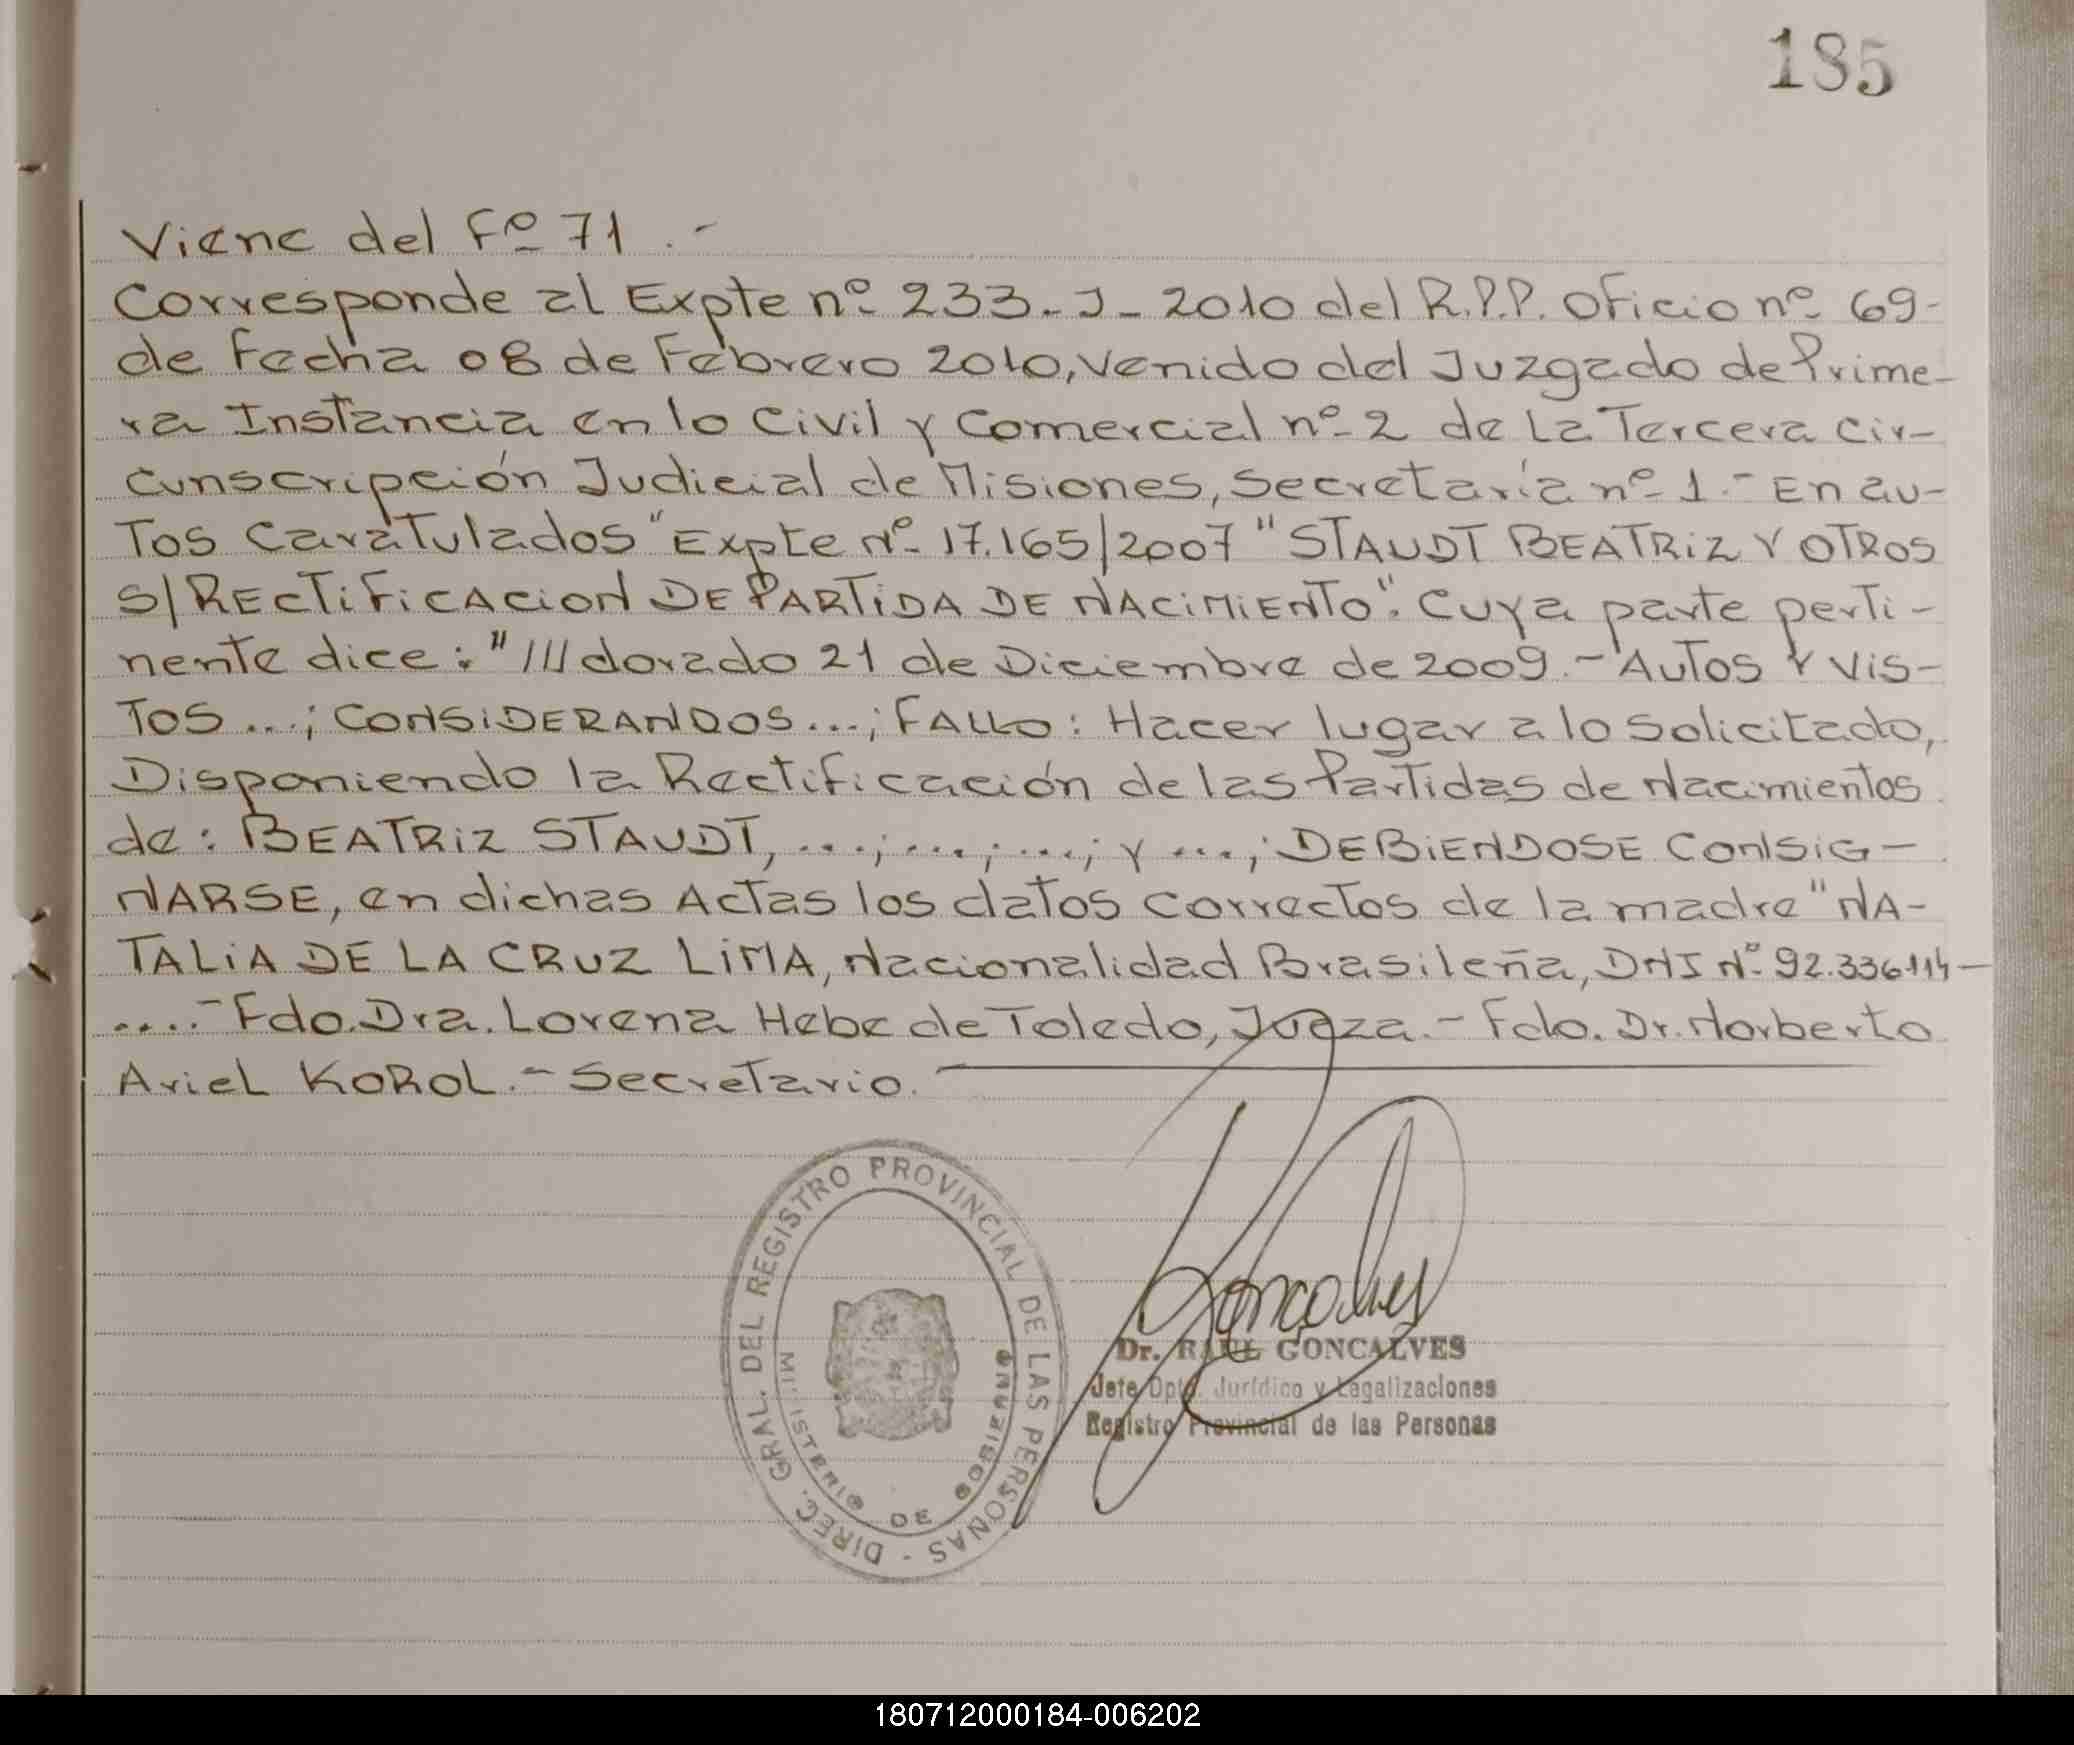 185
Viene del Fº 71.-
Corresponde al Expte nº 233-J-2010 del R.P.P. Oficio nº 69-
de Fecha 08 de Febrero 2010, Venido del Juzgado de Prime-
ra Instancia en lo Civil y Comercial nº 2 de La Tercera Cir-
cunscripción Judicial de Misiones, Secretaría nº 1.- En au-
Tos Caratulados "Expte Nº 17.165/2007 "STAUDT BEATRIZ Y OTROS
S/RECTIFICACION DE PARTIDA DE NACIMIENTO". Cuya parte perti-
nente dice: "///dorado 21 de Diciembre de 2009.- Autos Y Vis-
Tos...; CONSIDERANDOS...; FALLO: Hacer lugar a lo solicitado,
Disponiendo la Rectificación de las Partidas de Nacimientos
de: BEATRIZ STAUDT, ...; ...; ...; y ...; DEBIENDOSE CONSIG-
NARSE, en dichas Actas los datos correctos de la madre "NA-
TALIA DE LA CRUZ LIMA, Nacionalidad Brasileña, DNI Nº 92.336.114-
....- Fdo. Dra. Lorena Hebe de Toledo, Jueza.- Fdo. Dr. Norberto
Ariel KOROL.- Secretario.
DIREC. GRAL. DEL REGISTRO PROVINCIAL DE LAS PERSONAS -
MINISTERIO DE GOBIERNO
Goncalves
Dr. RAUL GONCALVES
Jefe Dpto. Jurídico y Legalizaciones
Registro Provincial de las Personas
180712000184-006202